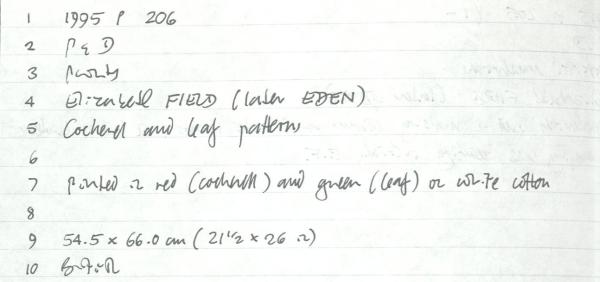 1 1995 P 206
2 P & D
3 Prints
4 Elizabeth FIELD (later EDEN)
5 Cockerel and leaf pattern
6
7 Printed in red (cockerell) and green (leaf) on white cotton
8
9 54.5 x 66.0 cm (21 1/2 x 26 in)
10 British